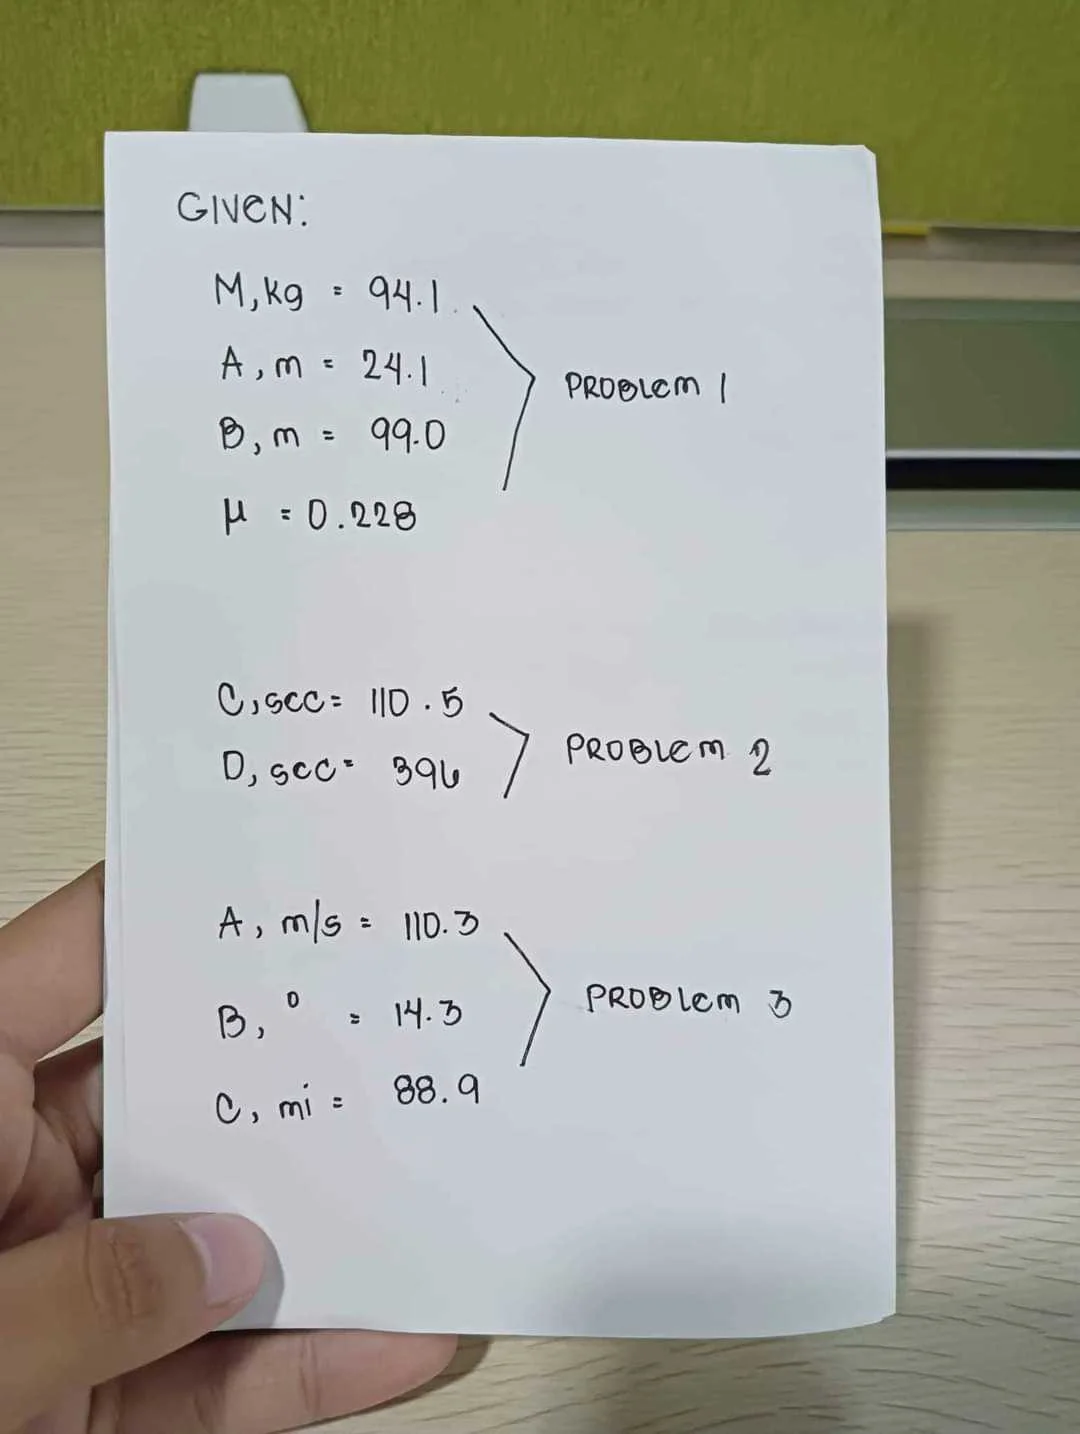 GIVEN:
M, kg = 94.1
A, m = 24.1
B, m = 99.0
μ = 0.228
PROBLEM 1
C, sec = 110.5
D, sec = 396
PROBLEM 2
A, m/s = 110.3
B, ° = 14.3
C, mi = 88.9
PROBLEM 3